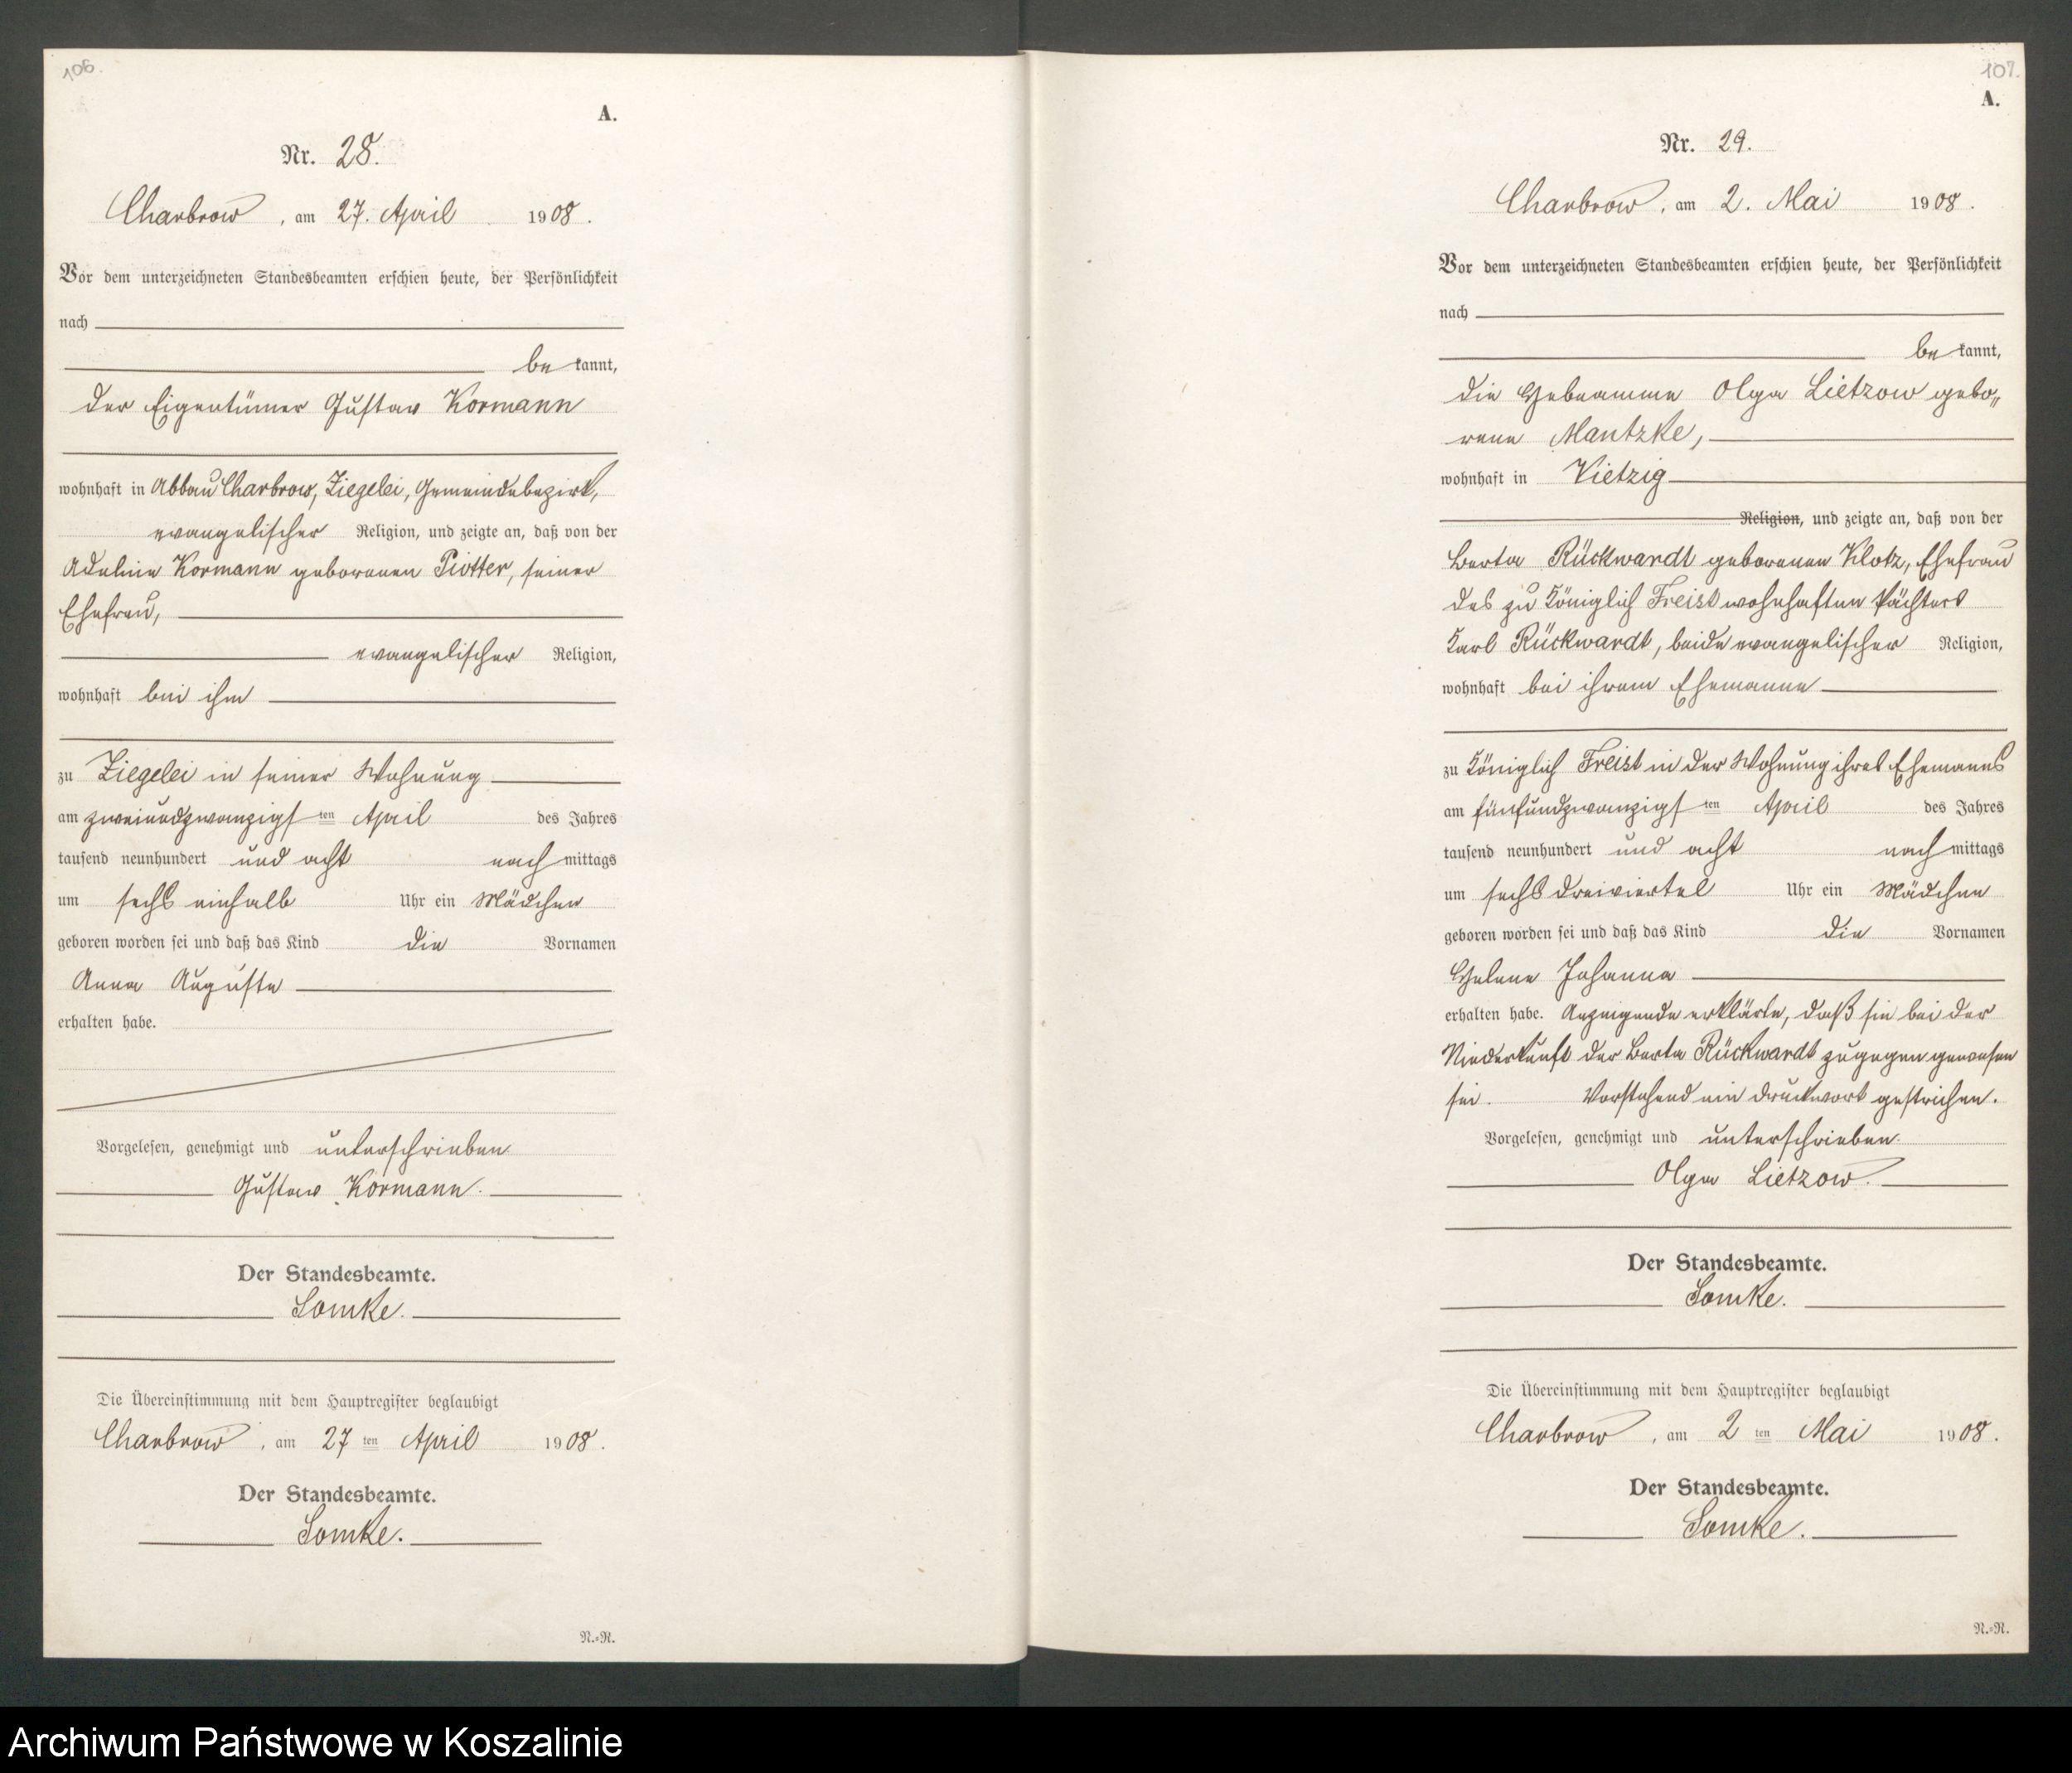 106.
A.
Nr. 28.
Charbrow, am 27. April 1908.
Vor dem unterzeichneten Standesbeamten erschien heute, der Persönlichkeit
nach
be kannt,
der Eigentümer Gustav Kormann
wohnhaft in Abbau Charbrow, Ziegelei, Gemeindebezirk,
evangelischer Religion, und zeigte an, daß von der
Adeline Kormann geborenen Piotter, seiner
Ehefrau,
evangelischer Religion,
wohnhaft bei ihm
zu Ziegelei in seiner Wohnung
am zweiundzwanzigsten April des Jahres
tausend neunhundert und acht nach mittags
um sechs einhalb Uhr ein Mädchen
geboren worden sei und daß das Kind die Vornamen
Anna Auguste
erhalten habe.
Vorgelesen, genehmigt und unterschrieben
Gustav Kormann.
Der Standesbeamte.
Somke.
Die Übereinstimmung mit dem Hauptregister beglaubigt
Charbrow, am 27 ten April 1908.
Der Standesbeamte.
Somke.
N.=N.
107.
A.
Nr. 29.
Charbrow, am 2. Mai 1908.
Vor dem unterzeichneten Standesbeamten erschien heute, der Persönlichkeit
nach
be kannt,
die Hebeamme Olga Lietzow gebo„
rene Mantzke,
wohnhaft in Vietzig
Religion, und zeigte an, daß von der
Berta Rückwardt geborenen Klotz, Ehefrau
des zu Königlich Freist wohnhaften Pächters
Karl Rückwardt, beide evangelischer Religion,
wohnhaft bei ihrem Ehemanne
zu Königlich Freist in der Wohnung ihres Ehemanns
am fünfundzwanzigsten April des Jahres
tausend neunhundert und acht nach mittags
um sechs dreiviertel Uhr ein Mädchen
geboren worden sei und daß das Kind die Vornamen
Helene Johanna
erhalten habe. Anzeigende erklärte, daß sie bei der
Niederkunft der Berta Rückwardt zugegen gewesen
sei. Vorstehend ein Druckwort gestrichen.
Vorgelesen, genehmigt und unterschrieben.
Olga Lietzow.
Der Standesbeamte.
Somke.
Die Übereinstimmung mit dem Hauptregister beglaubigt
Charbrow, am 2 ten Mai 1908.
Der Standesbeamte.
Somke.
N.=N.
Archiwum Państwowe w Koszalinie